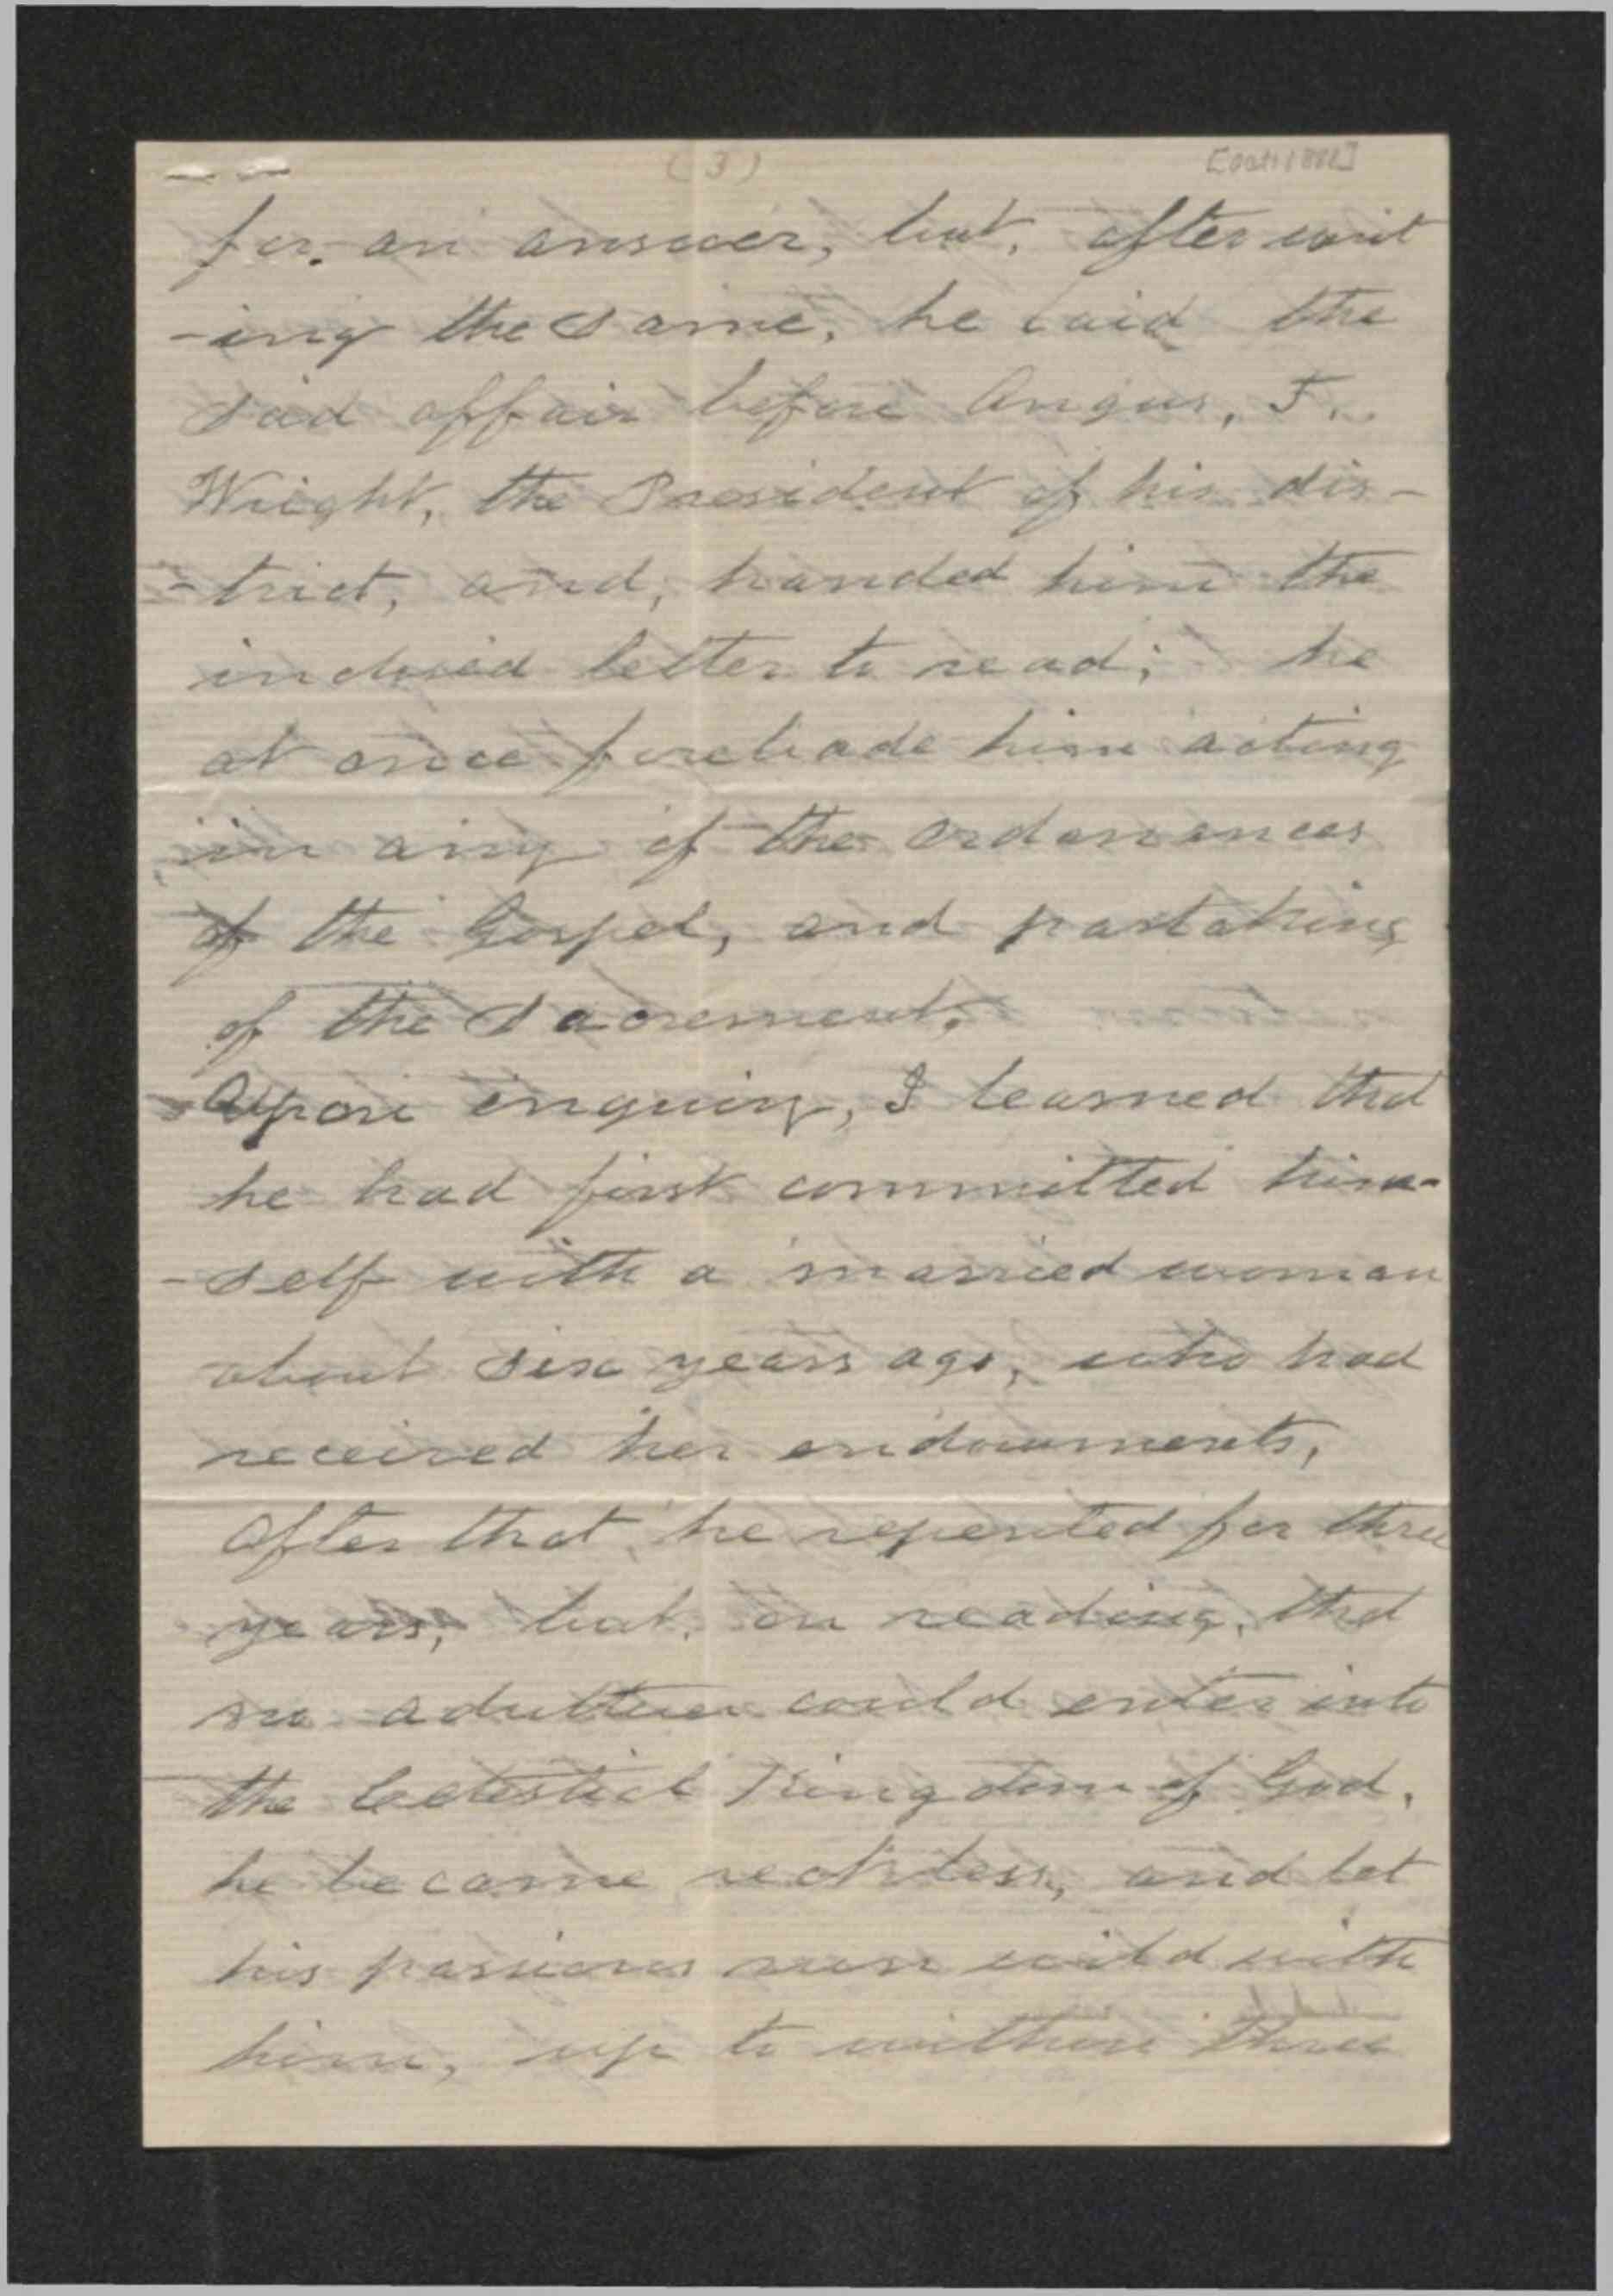 (3)
for. an answer, but, after writ
-ing the same, he laid the
sad affair before Angus, T..
Wright, the President of his dis-
-trict, and, handed him the
inclosed letter to read; he
at once forebade him acting
in any of the ordenances
of the Gospel, and partaking
of the Sacrement.
Upon enquiry, I learned that
he had first committed him-
-self with a married woman
about six years ago, who had
received her endowments,
After that he repented for three
years, but, on reading, that
no adulterer could enter into
the Celestial Kingdom of God,
he became reckless, and let
his passions run wild with
him, up to within three